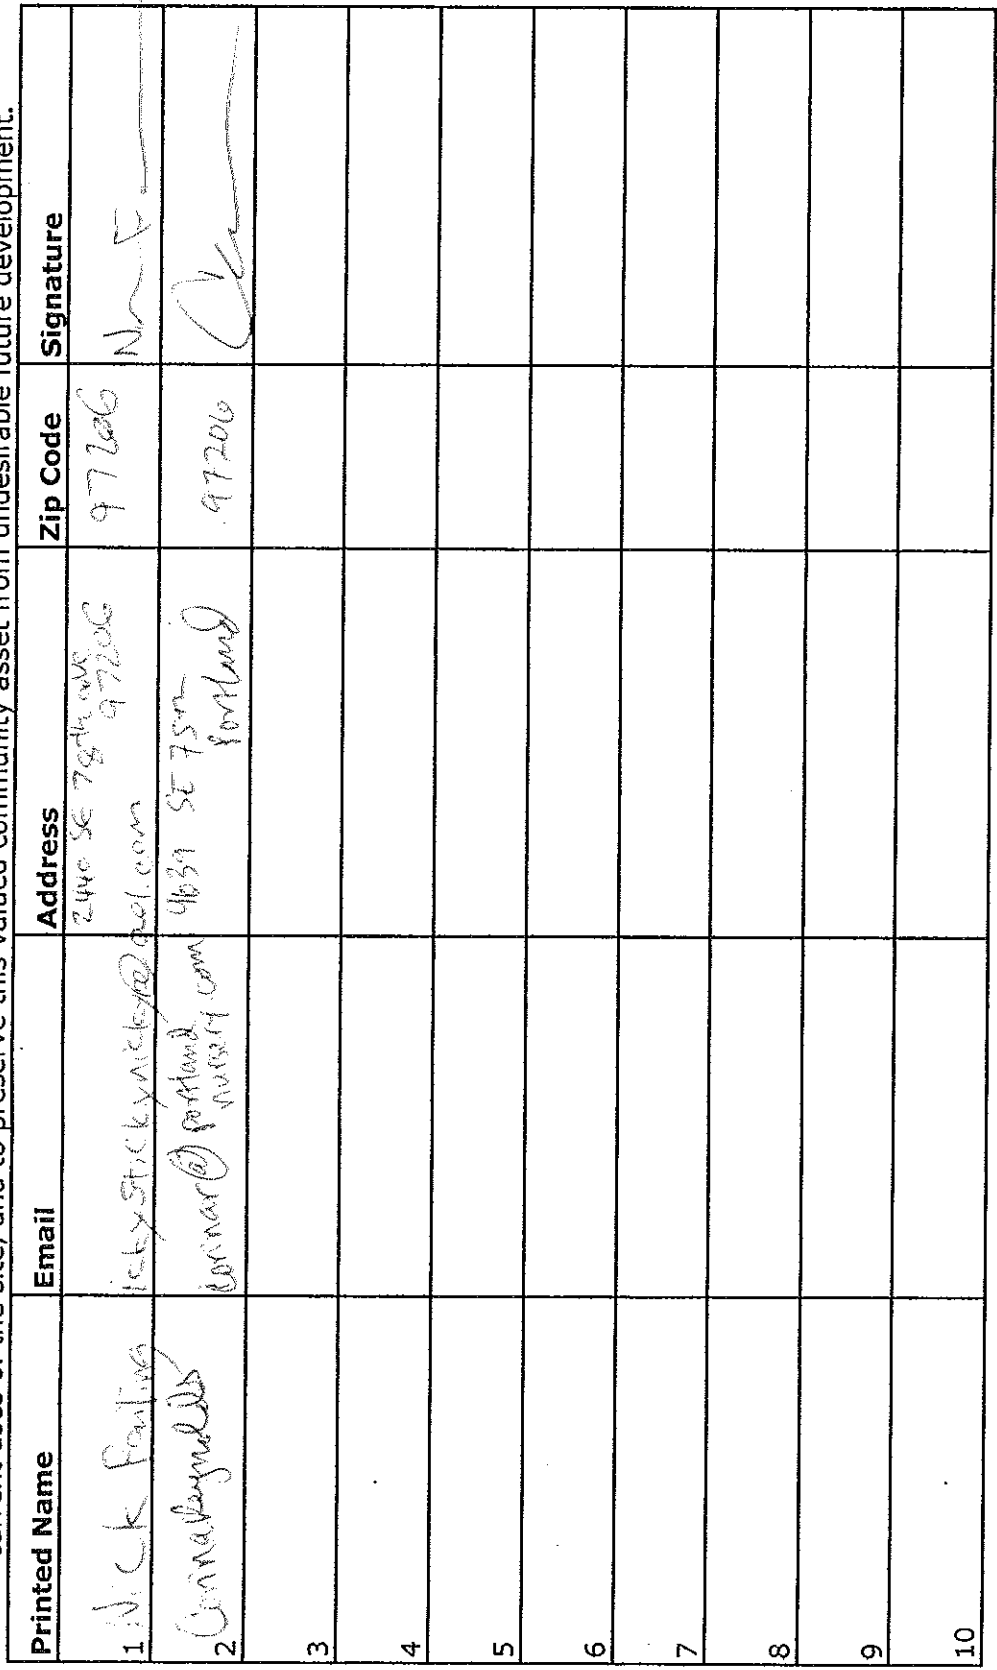 current uses of the site, and to preserve this valued community asset from undesirable future development.
Printed Name Email Address Zip Code Signature
1 Nick Failing ickystickynicky@aol.com 2440 SE 78th ave 97206 97206
2 Corina Reynolds corinar@portland nursery.com 4639 SE 75th Portland 97206
3
4
5
6
7
8
9
10